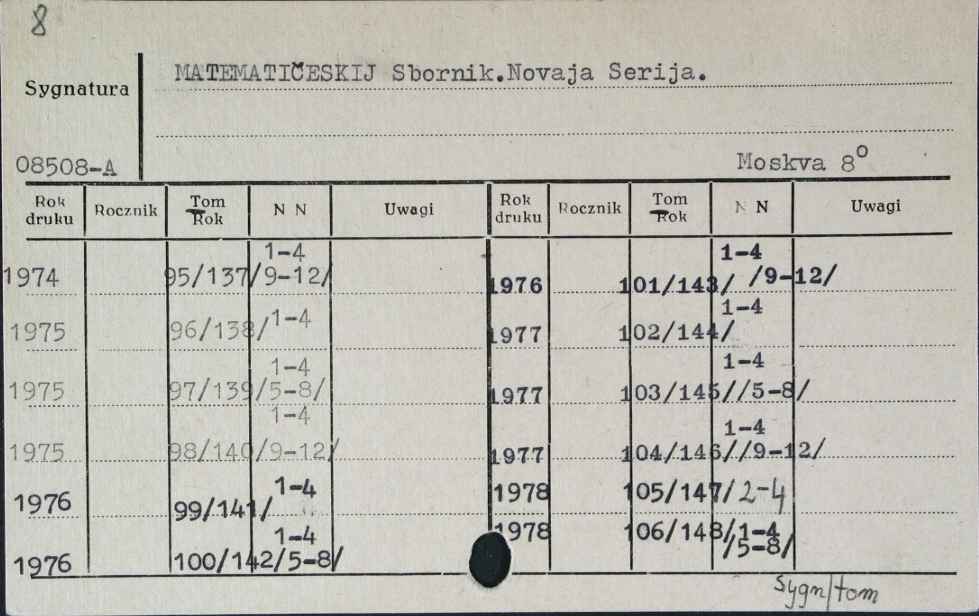 8
MATEMATIČESKIJ Sbornik.Novaja Serija.
Sygnatura
08508-A
Moskva 8°
Rok druku Rocznik Tom Rok N N Uwagi Rok druku Rocznik Tom Rok N N Uwagi
1-4
1974 95/137/9-12/
1975 96/138/1-4
1-4
1975 97/139/5-8/
1-4
1975 98/140/9-12/
1-4
1976 99/141/
1-4
1976 100/142/5-8/
1-4
1976 101/143/ /9-12/
1-4
1977 102/144/
1-4
1977 103/145//5-8/
1-4
1977 104/146//9-12/
1978 105/147/2-4
1978 106/148/1-4
/5-8/
Sygn/tom